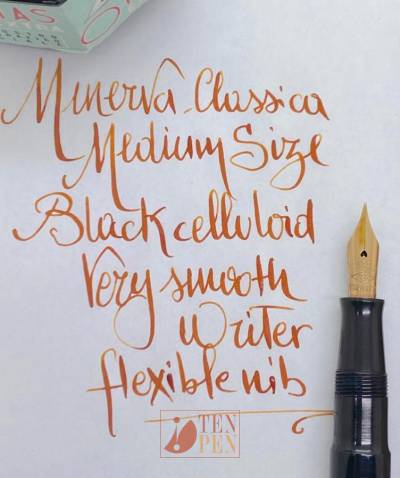 Minerva Classica
Medium Size
Black celluloid
Very smooth
Writer
flexible nib
TEN
PEN